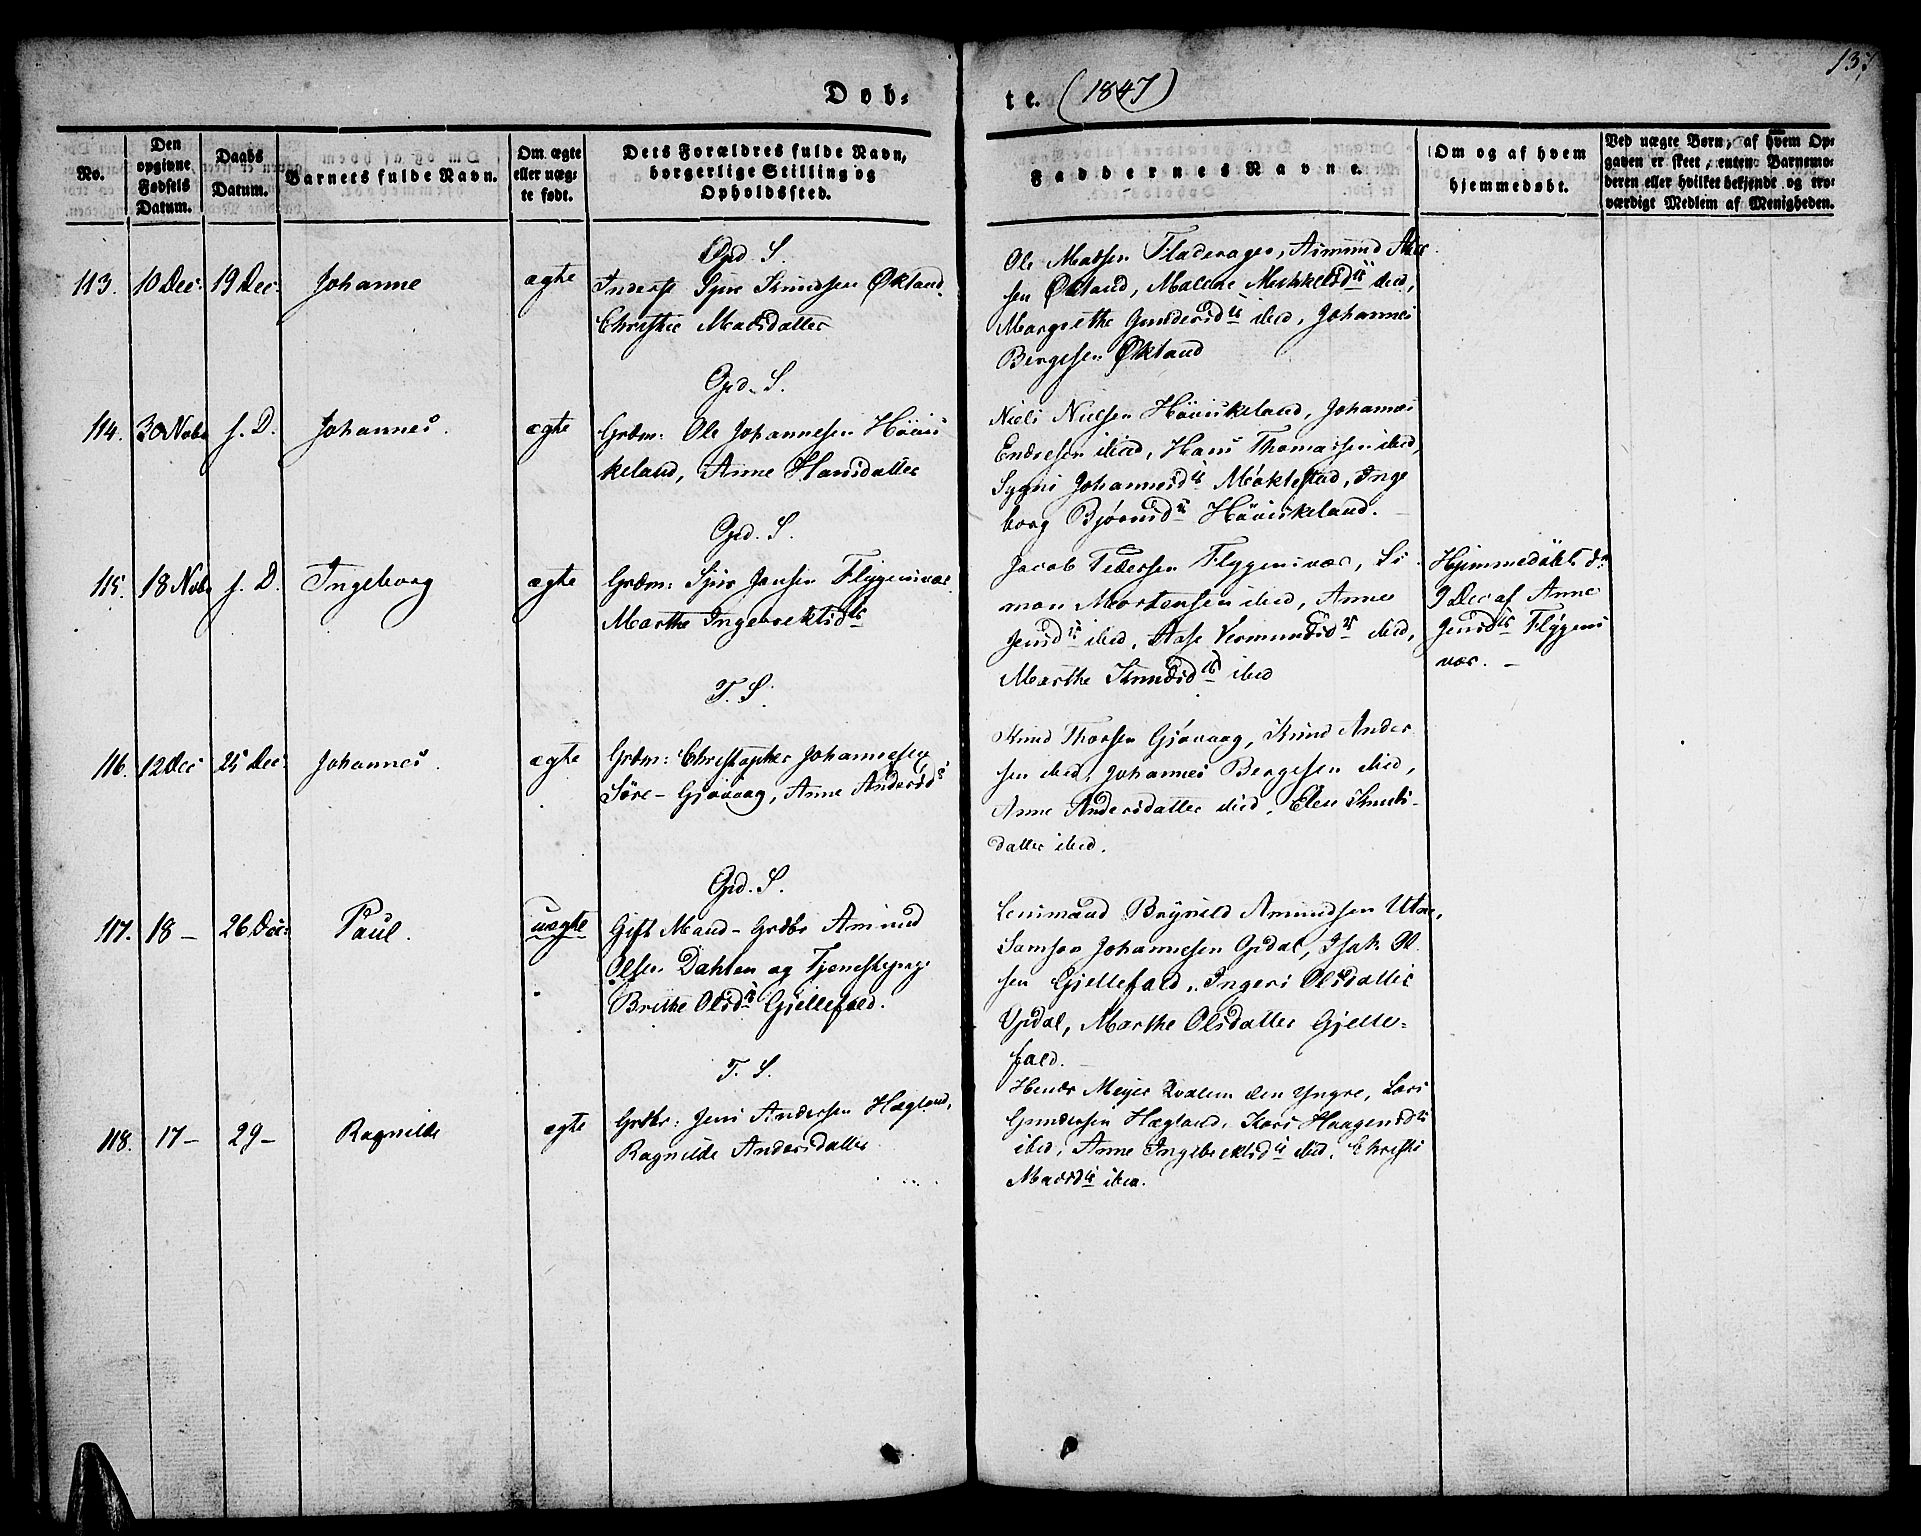 137
Døb-
te. (1847)
No.
Den opgivne Fødsels Datum.
Daabs Datum.
Barnets fulde Navn.
Om ægte eller uægte født.
Dets Forældres fulde Navn, borgerlige Stilling og Opholdssted.
Faddernes Navne.
Om og af hvem hjemmedøbt.
Ved uægte Børn, af hvem Opgaven er skeet, enten Barnemoderen eller hvilket bekjendt og troværdigt Medlem af Menigheden.
Opd. S.
113. 10 Dec. 19 Dec. Johanne ægte
Inderst Sjur Knudsen Økland
Christie Madsdatter
Ole Madsen Fladerager, Asmund
sen Økland, Malene Michkelsdtr ibid,
Margrethe Gundersdtr ibid, Johannes
Bergesen Økland
Opd. S.
114. 30 Nobr s. D. Johannes. ægte
Grdm: Ole Johannesen Hövis
keland, Anne Hansdatter
Niels Nielsen Höviskeland, Johannes
Endresen ibid, Hans Thomassen ibid,
Sygni Johannesdtr Møklestad, Inge
borg Bjørnsdtr Höviskeland.
Opd. S.
115. 18 Nobr s. D. Ingeborg ægte
Grdm: Sjur Jansen Flygensvær
Marthe Ingebrektsdtr
Jacob Pedersen Flygensvær, Si
mon Mortensen ibid, Anne
Jensdtr ibid, Aase Vermundsdtr ibid,
Marthe Knudsdtr ibid
Hjemmedöbt dn
9 Dec af Anne
Jensdtr Flÿgens
vær. –
T. S.
116. 12 Dec 25 Dec Johannes. ægte
Grdm: Christopher Johannesen
Söre-Gjøvaag, Anne Andersdtr
Knud Thorsen Gjøvaag, Knud Ander
sen ibid, Johannes Bergesen ibid,
Anne Andersdatter ibid, Elen Knuds-
datter ibid.
Opd. S.
117. 18 – 26 Dec. Paul. uægte
Gift Mand - Grdbr Amund
Olsen Dahlen og Tjenestepige
Brithe Olsdtr Gjellefald.
Lensmand Brynild Amundsen Utne,
Samson Johannesen Opdal, Isak Ol
sen Gjellefald, Ingeri Olsdatter
Opdal, Marthe Olsdatter Gjelle-
fald.
T. S.
118. 17 – 29 – Ragnilde ægte
Grdbr: Jens Andersen Hægland,
Ragnilde Andersdatter
Hendr Meyer Qvalem den Yngre, Lars
Gundersen Hægland, Kari Haagensdtr
ibid, Anne Ingebrektsdtr ibid, Christi
Madsdtr ibid.